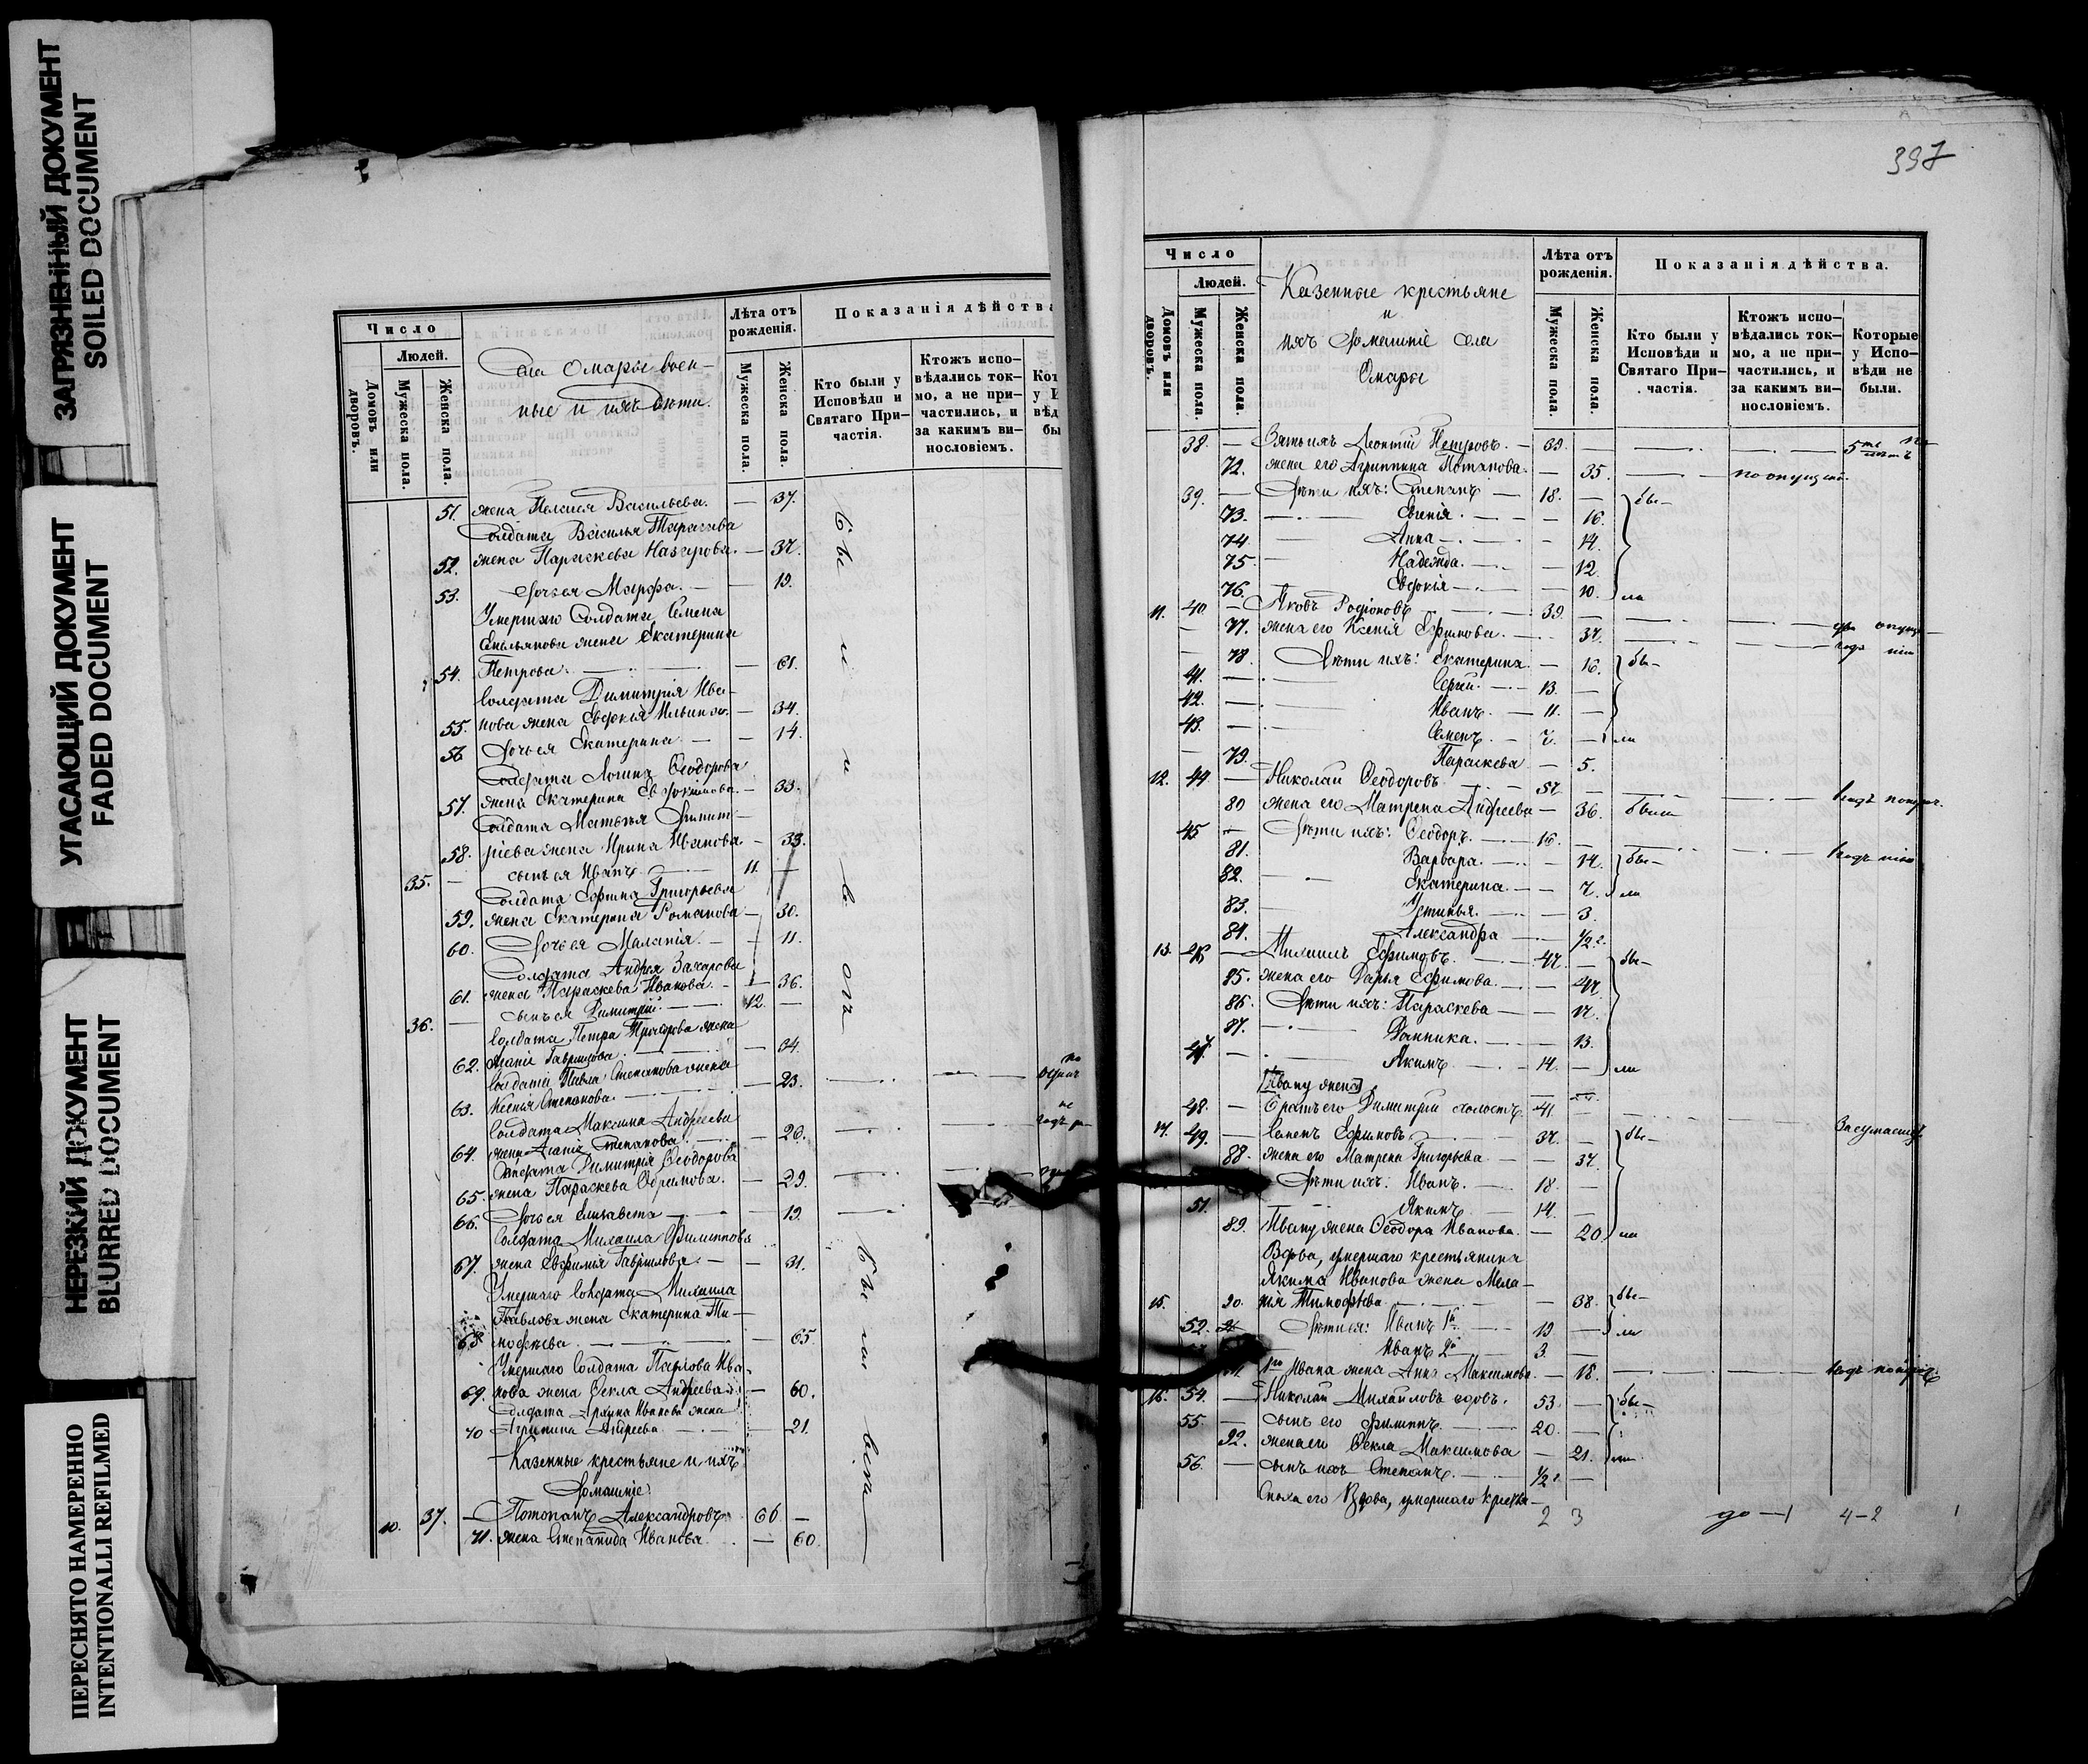 ЗАГРЯЗНЕННЫЙ ДОКУМЕНТ
SOILED DOCUMENT
УГАСАЮЩИЙ ДОКУМЕНТ
FADED DOCUMENT
НЕРЕЗКИЙ ДОКУМЕНТ
BLURRED DOCUMENT
ПЕРЕСНЯТО НАМЕРЕННО
INTENTIONALLI REFILMED
Число
Людей.
Домовъ или дворовъ.
Мужеска пола.
Женска пола.
села Омары воен-
ные и ихъ дѣти.
Лѣта отъ рожденія.
Мужеска пола.
Женска пола.
Показанія дѣйства
Кто были у Исповѣди и Святаго Причастія.
Ктожъ исповѣдались токмо, а не причастились, и за какимъ винословіемъ.
51. жена Пелагея Васильева. — 37.
Солдата Василья Тарасова
52. жена Параскева Назарова. — 37.
53. Дочь ея Марфа. — 19.
Умершаго Солдата Семена
Емельянова жена Екатерина
54. Петрова. — 61.
Солдата Димитрія Ива-
55. нова жена Евдокія Ильина — 34.
56 Дочь ея Екатерина. — 14.
Солдата Логина Ѳеодорова
57. жена Екатерина Евдокимова. — 33.
Солдата Матвѣя Димит-
58. ріева жена Ирина Иванова. — 33.
35. — сынъ ея Иванъ — 11. —
Солдата Ефима Григорьева
59. жена Екатерина Романова — 30.
60. Дочь ея Маланія. — 11.
Солдата Андрея Захарова
61. жена Параскева Иванова. — 36.
36. — сынъ ея Димитрій. — 12. —
Солдата Петра Прохорова жена
62. Гаврилова. — 34.
Солдата Павла Степанова жена
63. Ксенія Степанова. — 23.
Солдата Максима Андреева
64. жена Степанова. — 26.
Солдата Димитрія Ѳеодорова
65. жена Параскева Ефимова. — 29.
66. Дочь ея Елизавета — 19.
Солдата Михаила Филиппова
67. жена Евфимія Гаврилова. — 31.
Умершаго Солдата Михаила
Павлова жена Екатерина Ти-
68 мофѣева. — 65.
Умершаго Солдата Павлова Ива-
69. нова жена Ѳекла Андреева — 60.
Солдата Иванова жена
70 Агрипина Андреева. — 21.
Казенные крестьяне и ихъ
Домашніе
10. 37. — Потапъ Александровъ 66 —
71. жена Степанида Иванова. — 60
397
Число
Людей.
Домовъ или дворовъ.
Мужеска пола.
Женска пола.
Казенные крестьяне
и
ихъ домашніе села
Омары
Лѣта отъ рожденія.
Мужеска пола.
Женска пола.
Показанія дѣйства.
Кто были у Исповѣди и Святаго Причастія.
Ктожъ исповѣдались токмо, а не причастились, и за какимъ винословіемъ.
Которые у Исповѣди не были.
38. — Зять ихъ Леонтій Петровъ. — 39. —
72. жена его Агриппина Потапова. — 35. — по опущен.
39. — Дѣти ихъ: Степанъ — 18. — бы-
73. Евгенія. — 16.
74. Анна — 14.
75 Надежда. — 12.
76. Евдокія — 10. ли
11. 40 — Яковъ Родіоновъ — 39. —
77. жена его Ксенія Ефимова. — 37.
78 Дѣти ихъ: Екатерина. — 16. бы-
41. — Сергѣй. — 13. —
42. — Иванъ. — 11. —
43. — Семенъ. — 7. — ли
79. Параскева — 5.
12. 44. — Николай Ѳеодоровъ — 37. —
80 жена его Матрена Андреева — 36. были
45 — Дѣти ихъ: Ѳеодоръ. — 16. —
81. Варвара. — 14. бы-
82. Екатерина. — 7. ли
83. Устинья. — 3.
84. Александра — 1/2 г.
13. 46 — Михаилъ Ефимовъ. — 47. — бы-
85. жена его Дарья Ефимова. — 47.
86. Дѣти ихъ: Параскева — 17.
87. Домника. — 13.
47. — Якимъ — 14. — ли
Ивану жена
48. — Братъ его Димитрій холостъ. 41. —
14. 49. — Семенъ Ефимовъ. 37. — бы-
88. жена его Матрена Григорьева — 37.
Дѣти ихъ: Иванъ. — 18. —
51. Якимъ — 14. —
89. Ивану жена Ѳеодора Иванова. — 20 ли
Вдова, умершаго крестьянина
Якима Иванова жена Мела-
15. 90. нія Тимофѣева. — 38. бы-
52. Дѣти ея: Иванъ 1й 19. — ли
Иванъ 2й 3. —
91. 1го Ивана жена Анна Максимова. — 18.
16. 54. — Николай Михайловъ вдовъ. 53. — бы-
55. — сынъ его Филиппъ — 20. —
92. жена его Ѳекла Максимова — 21. ли
56. — сынъ ихъ Степанъ. — 1/2 г —
Сноха его Вдова, умершаго крестья-
2 3 до — 1 4-2 1